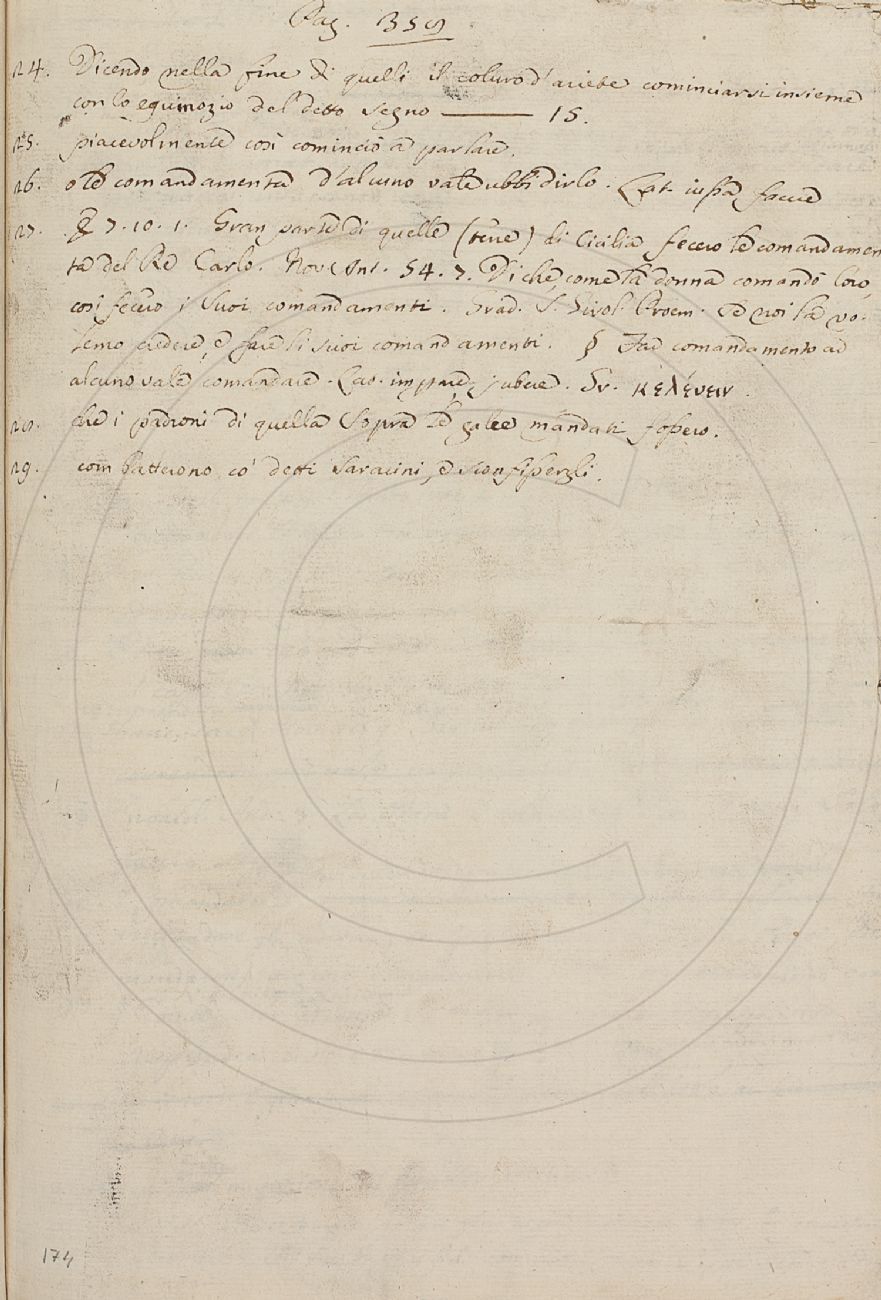 Pag. 359
24. Dicendo nella fine di quelli il coluro d'ariete cominciarsi insieme
con lo equinozio del detto segno ——— 15.
25. piacevolmente così cominciò a parlare.
26. o le comandamenta d'alcuno vale ubbidirlo. Lat. iussa facere
27. 7. 10. 1. Gran parte di quelle (terre) di Cicilia fecero le comandamen
ta del Re Carlo. Nov. Ant. 54. 7. Di che, come la donna comandò loro,
così fecero i suoi comandamenti. Grad. S. Girol. Proem. Se noi la vo-
lemo credere, e fare li suoi comandamenti. § Far comandamento ad
alcuno vale comandare. Lat. imperare, jubere. Gr. κελέυειν.
28. che i padroni di quella sopra le galee mandati fossero.
29. combatterono co' detti Saracini, e sconfissergli.
174